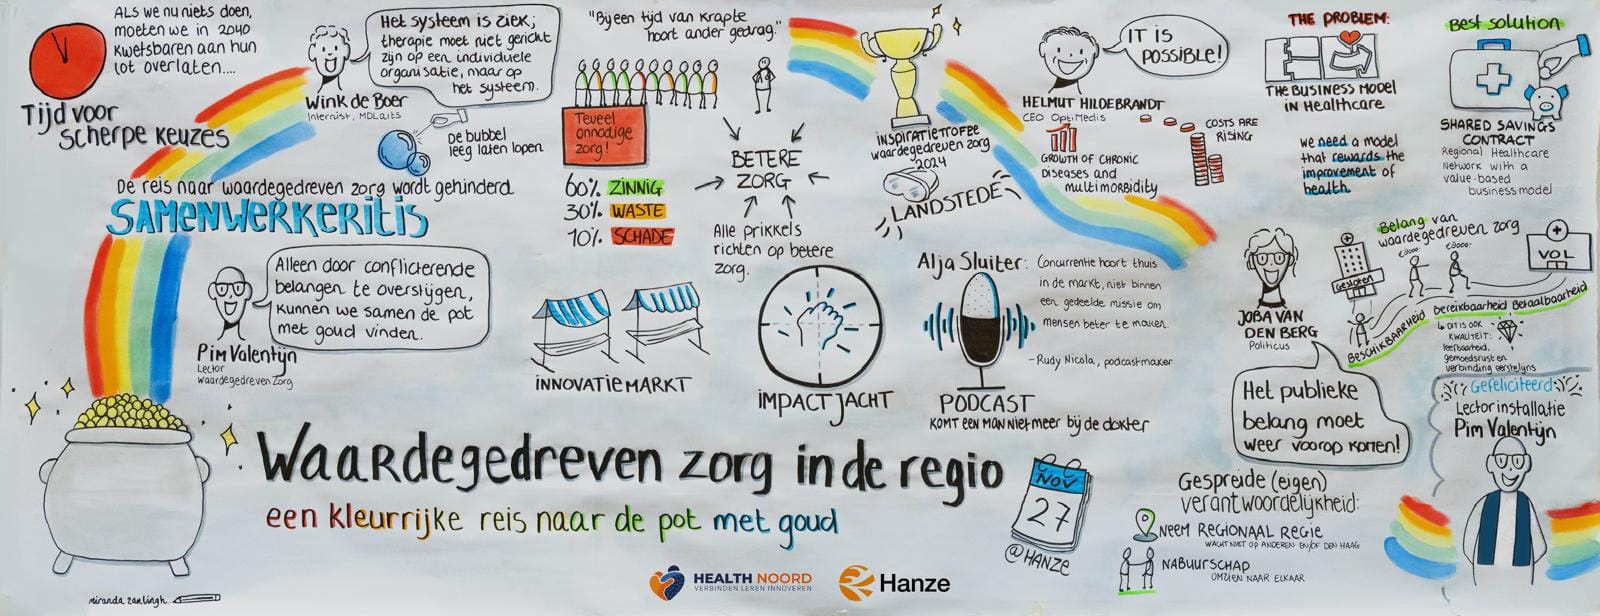 ALS WE NU NIETS DOEN,
MOETEN WE IN 2040
KWETSBAREN AAN HUN
LOT OVERLATEN....
Tijd voor
scherpe keuzes
Het systeem is ziek;
therapie moet niet gericht
zijn op een individuele
organisatie, maar op
het systeem.
Wink de Boer
Internist, MDLarts
De bubbel
leeg laten lopen
De reis naar waardegedreven zorg wordt gehinderd
SAMENWERKERITIS
Alleen door conflicterende
belangen te overstijgen,
kunnen we samen de pot
met goud vinden.
Pim Valentijn
Lector
Waardegedreven Zorg
"Bij een tijd van krapte
hoort ander gedrag."
Teveel
onnodige
zorg!
60% ZINNIG
30% WASTE
10% SCHADE
BETERE
ZORG
Alle prikkels
richten op betere
zorg.
INSPIRATIETROFEE
waardegedreven zorg
2024
LANDSTEDE
IT IS
POSSIBLE!
HELMUT HILDEBRANDT
CEO OptiMedis
GROWTH OF CHRONIC
DISEASES AND
multimorbidity
COSTS ARE
RISING
THE PROBLEM:
THE BUSINESS MODEL
IN HEALTHCARE
we need a model
that rewards the
improvement of
health
Best solution
SHARED SAVINGS
CONTRACT
Regional Healthcare
Network with a
value-based
business model
INNOVATIEMARKT
IMPACTJACHT
Alja Sluiter:
Concurrentie hoort thuis
in de markt, niet binnen
een gedeelde missie om
mensen beter te maken.
- Rudy Nicola, podcastmaker
PODCAST
KOMT EEN MAN NIET MEER BIJ DE DOKTER
JOBA VAN
DEN BERG
Politicus
Belang van
waardegedreven zorg
Gesloten
VOL
BESCHIKBAARHEID
bereikbaarheid
Betaalbaarheid
DIT IS OOK
KWALITEIT:
leefbaarheid,
gemoedsrust en
verbinding eerstelijns
Het publieke
belang moet
weer voorop komen!
Gefeliciteerd
Lectorinstallatie
Pim Valentijn
Waardegedreven zorg in de regio
een kleurrijke reis naar de pot met goud
NOV
27
@HANZE
Gespreide (eigen)
verantwoordelijkheid:
NEEM REGIONAAL REGIE
WACHT NIET OP ANDEREN EN/OF DEN HAAG
NABUURSCHAP
OMZIEN NAAR ELKAAR
HEALTH NOORD
VERBINDEN LEREN INNOVEREN
Hanze
miranda zanlingh